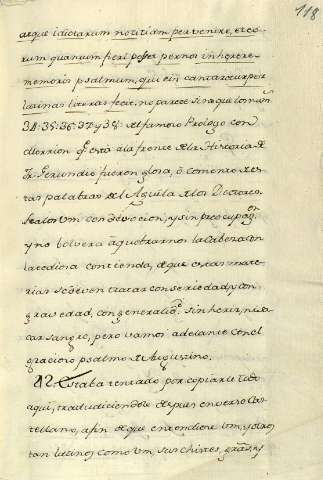 118
aequi idiotarum notitiam pervenire, et eo-
rum quanum fieri posset per nos inhaerere
memoriae psalmum, qui eis cantaretur per
latinas letras feci, no parece sino que los num.
34: 35: 36: 37: y 38: del famoso Prologo con
Morrion q.e está ala frente de la Historia de
Fr. Gerundio fueron glosa, ò comento de es-
tas palabras del Aguila de los Doctores.
Sealos Vm con devocion, y sin preocupaz.on
y no bolverá à quebrarnos la Cabeza con
la cediosa contienda, de que estas mate-
rias se deven tratar con seriedad, y con
gravedad, con generalid.e sin herir, ni sa-
car sangre, pero vamos adelante con el
gracioso psalmo de Augustino.
82. Estaba tentado por copiarle todo
aqui, traduciendole despues en verso Cas-
tellano, afin de que entendiese Vm, y otros
tan latinos como Vm, sus chistes, gracias, y